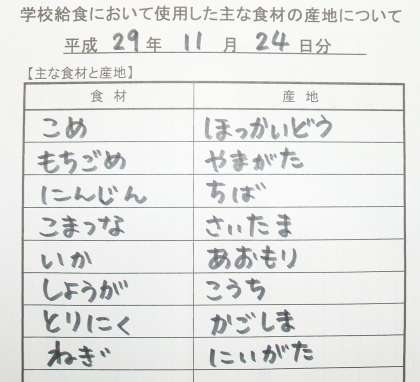 学校給食において使用した主な食材の産地について
平成 29 年 11 月 24 日分
【主な食材と産地】
食材 産地
こめ ほっかいどう
もちごめ やまがた
にんじん ちば
こまつな さいたま
いか あおもり
しょうが こうち
とりにく かごしま
ねぎ にいがた